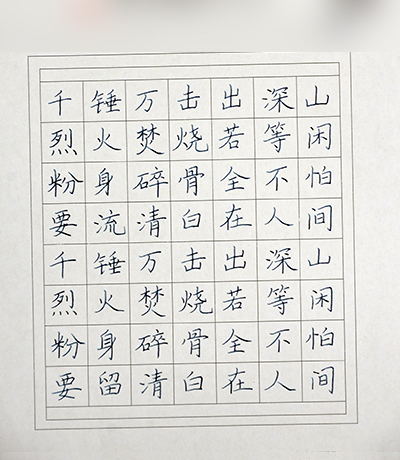 千锤万击出深山
烈火焚烧若等闲
粉身碎骨全不怕
要流清白在人间
千锤万击出深山
烈火焚烧若等闲
粉身碎骨全不怕
要留清白在人间